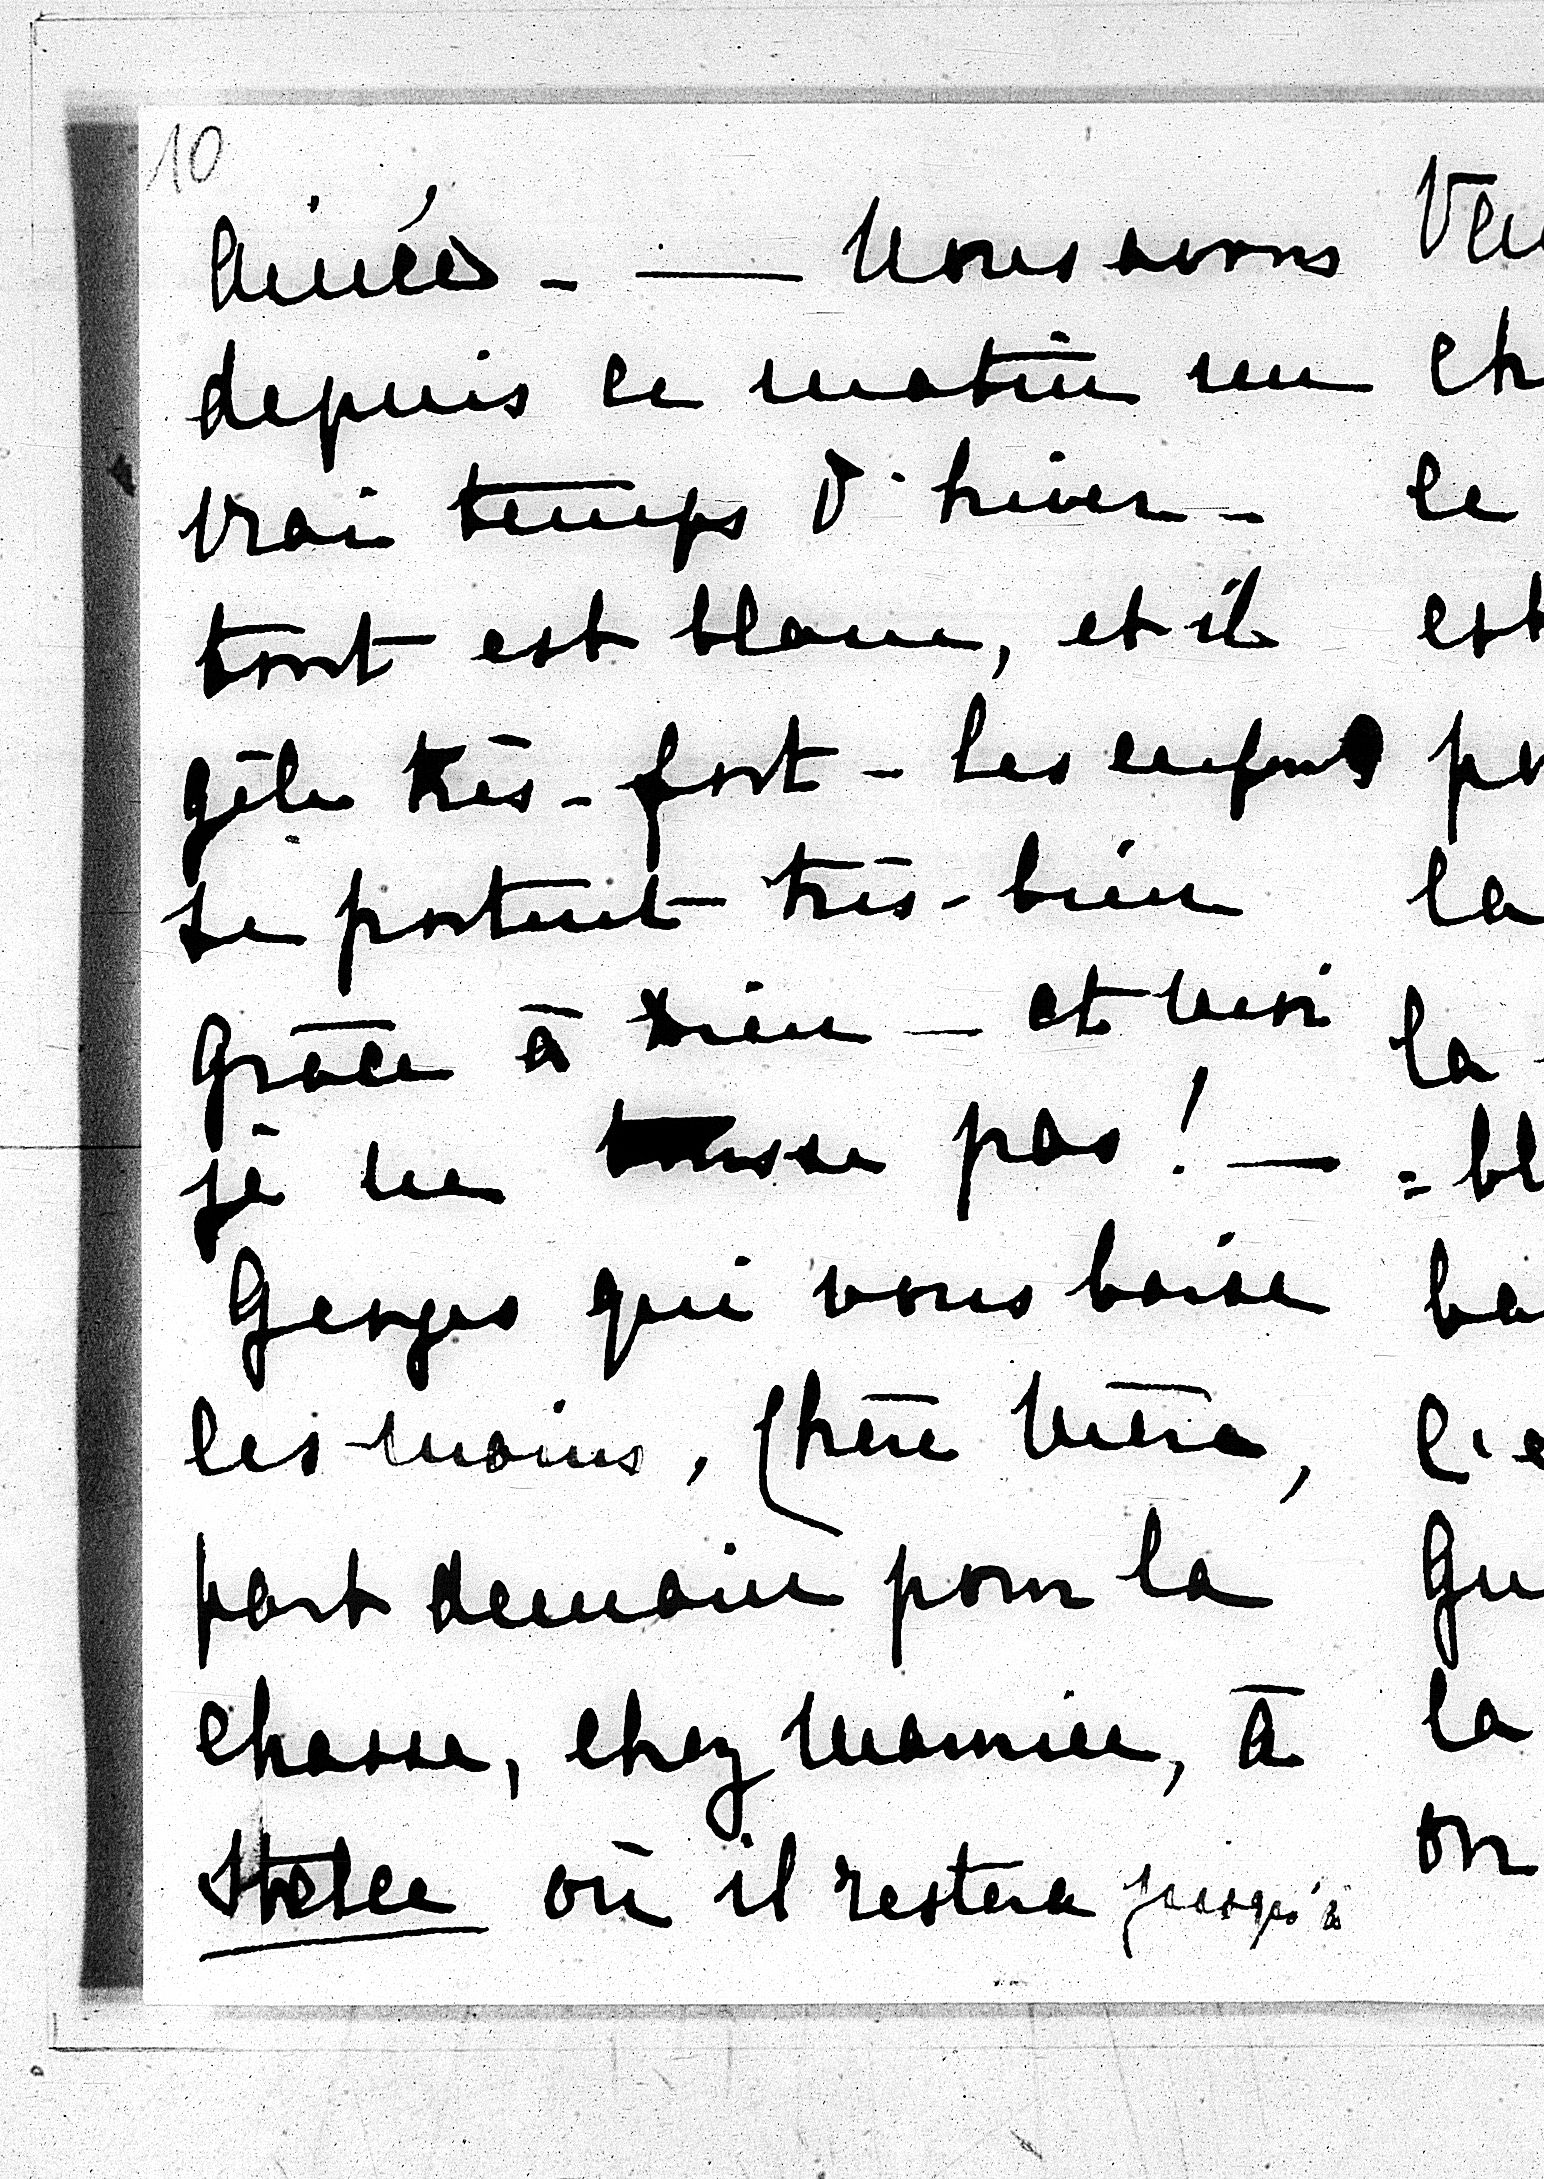 10
aimées. — Nous avons
depuis ce matin un
vrai temps d'hiver -
tout est blanc, et il
gêle très-fort - Les enfants
se portent très-bien
grâce à Dieu — et moi
je ne tousse pas! —
Georges qui vous baise
les mains, Chère Mère,
part demain pour la
chasse, chez Mamieu, à
où il restera jusqu'à
Ven
ch
le
est
po
la
la -
= bl
ba
l'e
Gu
la
on